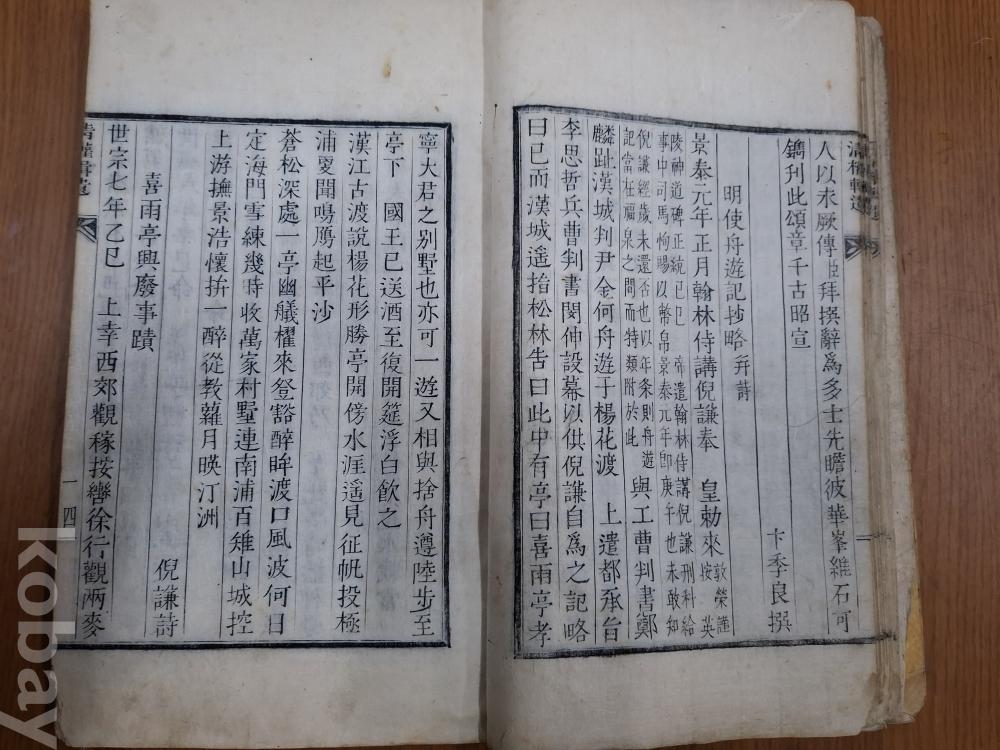 人以永厥傳臣拜撰辭爲多士先瞻彼華峯維石可
鐫刊此頌章千古昭宣
卞季良撰
明使舟遊記抄略 幷詩
景泰元年正月翰林侍講倪謙奉 皇勅來
敦榮謹按英
陵神道碑正統己巳 帝遣翰林侍講倪謙刑科給
事中司馬恂賜以幣帛景泰元年卽庚午也未敢知
倪謙經歲未還否也以年条則舟遊
記當在福泉之間而特類附於此
與工曹判書鄭
麟趾漢城判尹金何舟遊于楊花渡 上遣都承旨
李思哲兵曹判書閔伸設幕以供倪謙自爲之記略
曰已而漢城遥指松林告曰此中有亭曰喜雨亭孝
寧大君之别墅也亦可一遊又相與捨舟遵陸步至
亭下 國王已送酒至復開筵浮白飮之
漢江古渡說楊花形勝亭開傍水涯遥見征帆投極
浦夏聞鳴鴈起平沙
蒼松深處一亭幽艤櫂來登豁醉眸渡口風波何日
定海門雪練幾時收萬家村墅連南浦百雉山城控
上游撫景浩懷拚一醉從教蘿月暎汀洲
倪謙詩
喜雨亭興廢事蹟
世宗七年乙巳 上幸西郊觀稼按轡徐行觀兩麥
一四
kobay